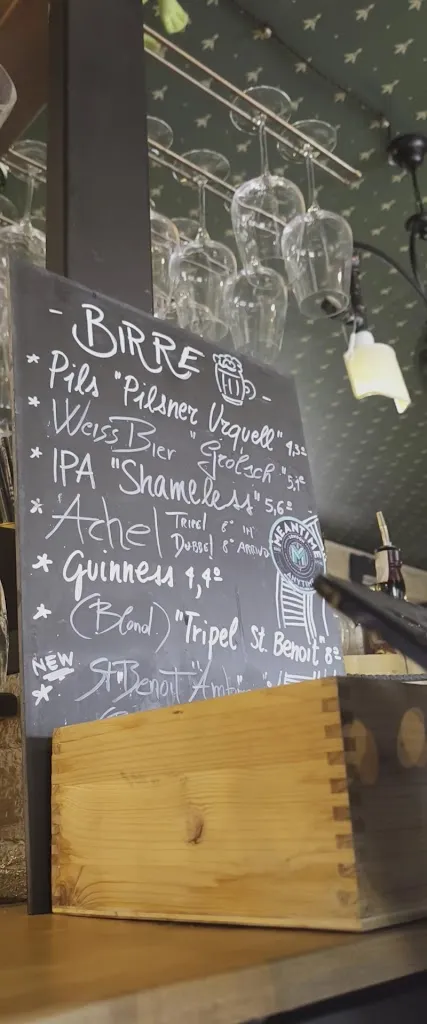 - BIRRE -
* Pils "Pilsner Urquell" 4,3°
* Weiss Bier "Grolsch" 5,1°
* IPA "Shameless" 5,6°
* Achel Tripel 8° IN
Dubbel 8° ARRIVO
MEANTIME
M
* Guinness 4,4°
* (Blond) "Tripel St. Benoit" 8°
NEW
* St. Benoit "Ambr